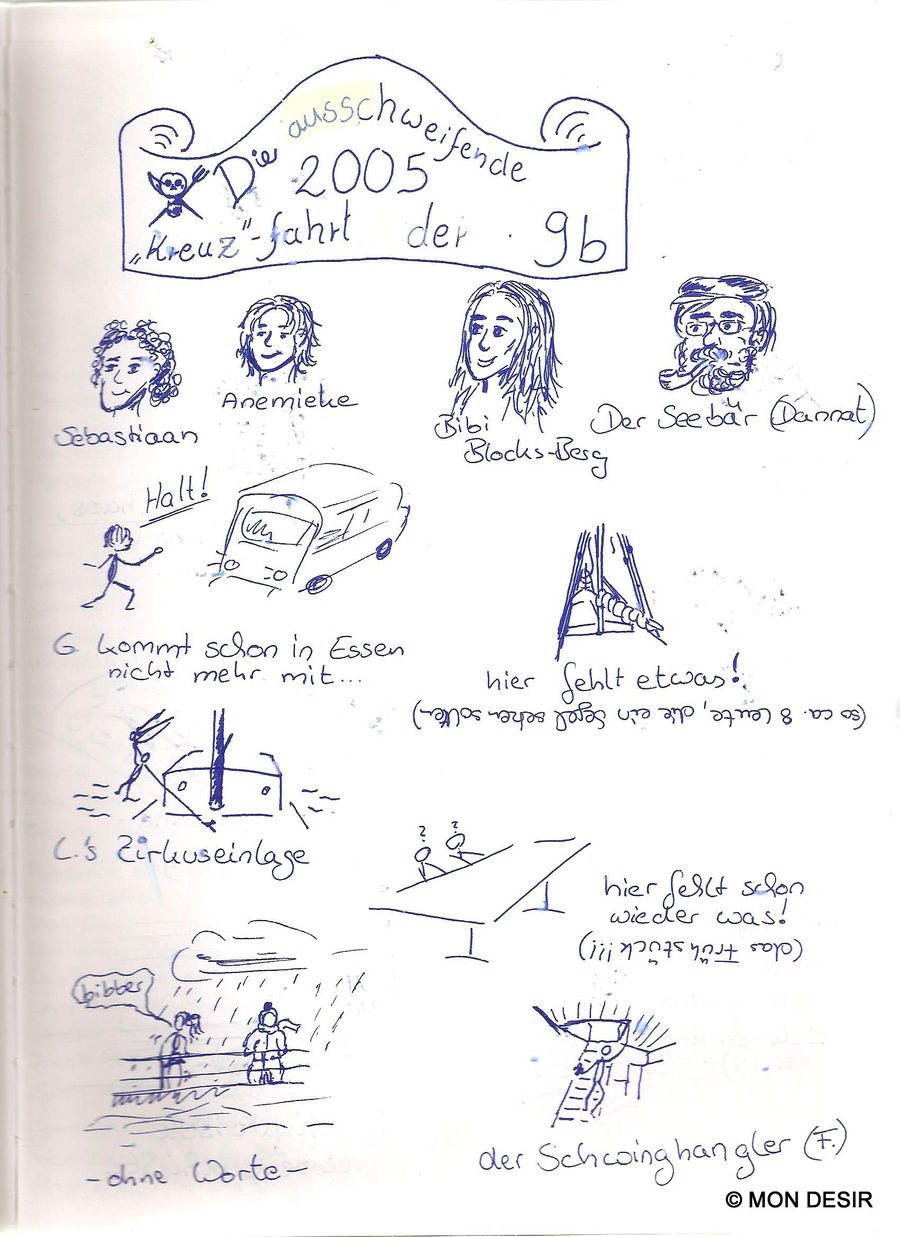 Die ausschweifende
2005
„Kreuz"-fahrt der 9b
Sebastiaan
Anemieke
Bibi
Blocks-Berg
Der Seebär (Dannat)
Halt!
G. kommt schon in Essen
nicht mehr mit...
hier fehlt etwas!
(so ca. 8 Leute, die ein Segel sehen sollten)
C.'s Zirkuseinlage
? ?
hier fehlt schon
wieder was!
(das Frühstück!!!)
bibber
-ohne Worte-
der Schwinghangler (F.)
© MON DESIR